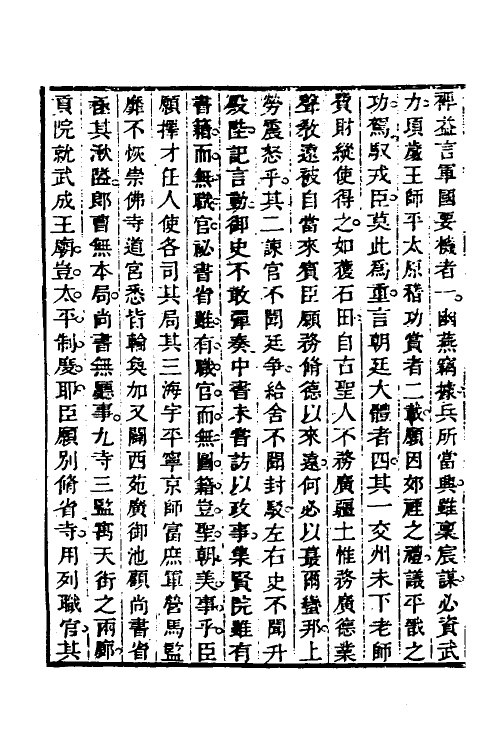 裨益言軍國要機者一幽燕竊據兵所當興雖稟宸謀必資武
力頃歲王師平太原稽功賞者二載願因郊禋之禮議平戩之
功駕馭戎臣莫此為重言朝廷大體者四其一交州未下老師
費財縱使得之如獲石田自古聖人不務廣疆土惟務廣德業
聲敎遠被自當來賓臣願務脩德以來遠何必以蕞爾蠻邦上
勞震怒乎其二諫官不聞廷争給舍不聞封駁左右史不聞升
殿陛記言動御史不敢彈奏中書未嘗訪以政事集賢院雖有
書籍而無職官祕書省雖有職官而無圖籍豈聖朝美事乎臣
願擇才任人使各司其局其三海宇平寧京師富庶軍營馬監
靡不恢崇佛寺道宮悉皆輪奐加又闢西苑廣御池顧尚書省
湫隘郎曹無本局尚書無廳事九寺三監寓天街之兩廊
貢院就武成王廟豈太平制度耶臣願别脩省寺用列職官其